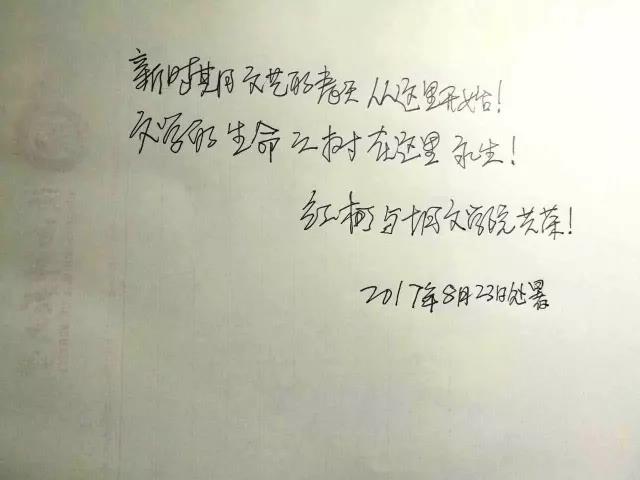 新时期文艺的春天从这里开始!
文学的生命之树在这里永生!
红柯与十月文学院共荣!
2017年8月23日处暑